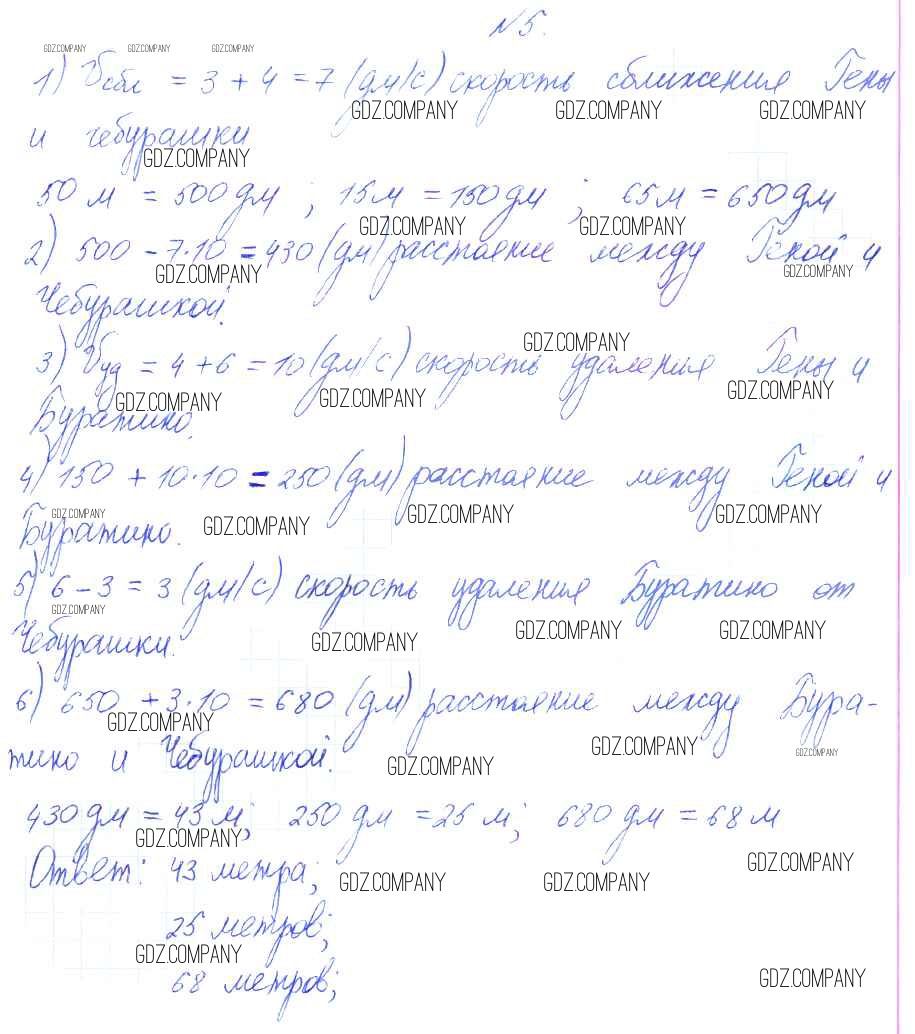 N 5.
GDZ.COMPANY GDZ.COMPANY GDZ.COMPANY
1) Vсбл = 3 + 4 = 7 (дм/с) скорость сближения Гены
GDZ.COMPANY GDZ.COMPANY GDZ.COMPANY
и чебурашки
GDZ.COMPANY
50 м = 500 дм ; 15 м = 150 дм ; 65 м = 650 дм
GDZ.COMPANY GDZ.COMPANY
2) 500 - 7·10 = 430 (дм) расстояние между Геной и
GDZ.COMPANY GDZ.COMPANY
Чебурашкой.
GDZ.COMPANY
3) Vуд = 4 + 6 = 10 (дм/с) скорость удаления Гены и
GDZ.COMPANY GDZ.COMPANY GDZ.COMPANY
Буратино.
4) 150 + 10·10 = 250 (дм) расстояние между Геной и
GDZ.COMPANY GDZ.COMPANY GDZ.COMPANY GDZ.COMPANY
Буратино.
5) 6 - 3 = 3 (дм/с) скорость удаления Буратино от
GDZ.COMPANY
Чебурашки.
GDZ.COMPANY GDZ.COMPANY GDZ.COMPANY
6) 650 + 3·10 = 680 (дм) расстояние между Бура-
GDZ.COMPANY
тино и Чебурашкой.
GDZ.COMPANY GDZ.COMPANY GDZ.COMPANY
430 дм = 43 м; 250 дм = 25 м; 680 дм = 68 м
GDZ.COMPANY
Ответ: 43 метра;
GDZ.COMPANY GDZ.COMPANY GDZ.COMPANY
25 метров;
GDZ.COMPANY
68 метров;
GDZ.COMPANY